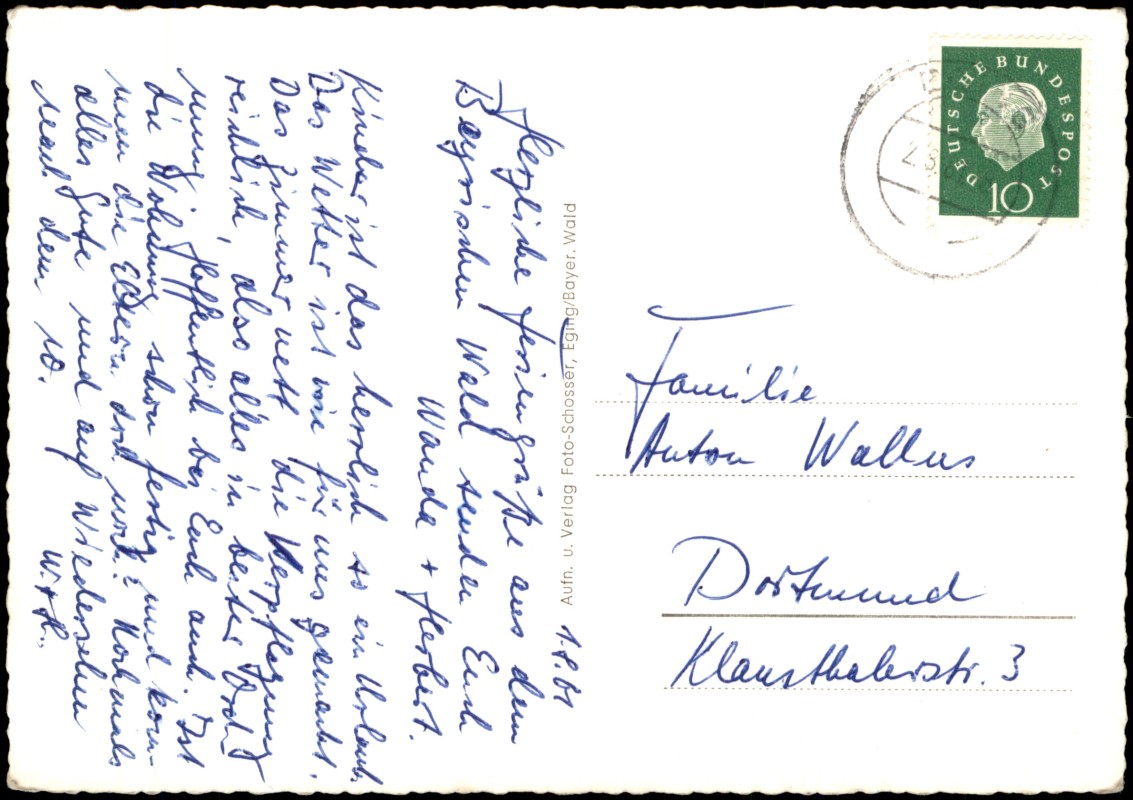 1.8.61
Herzliche Feriengrüße aus dem
Bayrischen Wald senden Euch
Wanda + Herbert.
Kinder ist das herrlich so ein Urlaub.
Das Wetter ist wie für uns gemacht.
Das Zimmer nett, die Verpflegung
reichlich, also alles in bester Ord-
nung, Hoffentlich bei Euch auch. Ist
die Wohnung schon fertig und kom-
men die Eltern dort noch? Nochmals
alles Gute und auf Wiedersehen
nach dem 10.
W. + H.
Aufn. u. Verlag Foto-Schosser, Eging/Bayer. Wald
DEUTSCHE BUNDESPOST
10
Familie
Anton Wallus
Dortmund
Klausthalerstr. 3